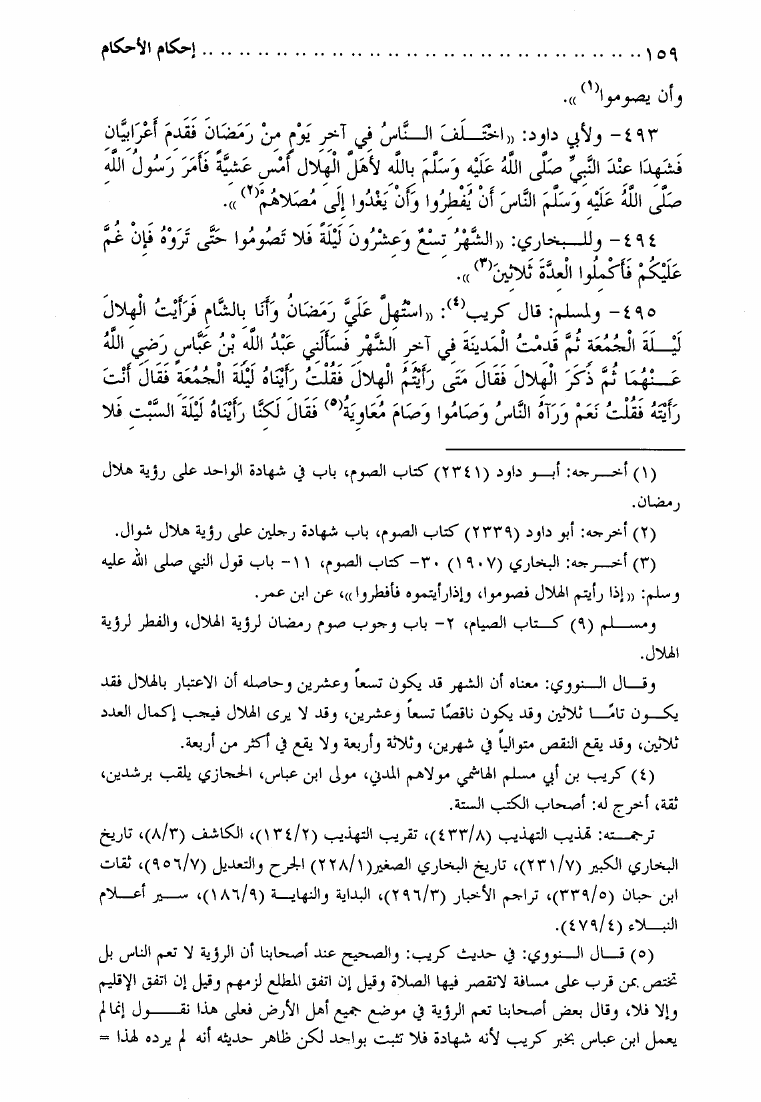 ١٥٩ .................................................. إحكام الأحكام
وأن يصوموا(١)».
٤٩٣- ولأبي داود: «اخْتَـلَفَ الـنَّاسُ فِي آخِرِ يَوْمٍ مِنْ رَمَضَانَ فَقَدِمَ أَعْرَابِيَّانِ
فَشَهِدَا عِنْدَ النَّبِيِّ صَلَّى اللَّهُ عَلَيْهِ وَسَلَّمَ بِاللَّهِ لَأَهَلَّ الْهِلَالُ أَمْسِ عَشِيَّةً فَأَمَرَ رَسُولُ اللَّهِ
صَلَّى اللَّهُ عَلَيْهِ وَسَلَّمَ النَّاسَ أَنْ يُفْطِرُوا وَأَنْ يَغْدُوا إِلَى مُصَلَاهُمْ(٢)».
٤٩٤- وللـبخاري: «الشَّهْرُ تِسْعٌ وَعِشْرُونَ لَيْلَةً فَلا تَصُومُوا حَتَّى تَرَوْهُ فَإِنْ غُمَّ
عَلَيْكُمْ فَأَكْمِلُوا الْعِدَّةَ ثَلاثِينَ(٣)».
٤٩٥- ولمسلم: قال كريب(٤): «اسْتُهِلَّ عَلَيَّ رَمَضَانُ وَأَنَا بِالشَّامِ فَرَأَيْتُ الْهِلالَ
لَيْـلَةَ الْجُمُعَةِ ثُمَّ قَدِمْتُ الْمَدِينَةَ فِي آخِرِ الشَّهْرِ فَسَأَلَنِي عَبْدُ اللَّهِ بْنُ عَبَّاسٍ رَضِيَ اللَّهُ
عَـنْهُمَا ثُمَّ ذَكَرَ الْهِلالَ فَقَالَ مَتَى رَأَيْتُمُ الْهِلالَ فَقُلْتُ رَأَيْنَاهُ لَيْلَةَ الْجُمُعَةِ فَقَالَ أَنْتَ
رَأَيْتَهُ فَقُلْتُ نَعَمْ وَرَآهُ النَّاسُ وَصَامُوا وَصَامَ مُعَاوِيَةُ(٥) فَقَالَ لَكِنَّا رَأَيْنَاهُ لَيْلَةَ السَّبْتِ فَلا
(١) أخـــرجه: أبـــو داود (٢٣٤١) كتاب الصوم، باب في شهادة الواحد على رؤية هلال
رمضان.
(٢) أخرجه: أبو داود (٢٣٣٩) كتاب الصوم، باب شهادة رجلين على رؤية هلال شوال.
(٣) أخـــرجه: البخاري (١٩٠٧) ٣٠- كتاب الصوم، ١١- باب قول النبي صلى الله عليه
وسلم: «إذا رأيتم الهلال فصوموا، وإذارأيتموه فأفطروا»، عن ابن عمر.
ومســـلم (٩) كـــتاب الصيام، ٢- باب وجوب صوم رمضان لرؤية الهلال، والفطر لرؤية
الهلال.
وقـــال الـــنووي: معناه أن الشهر قد يكون تسعاً وعشرين وحاصله أن الاعتبار بالهلال فقد
يكـــون تامـــا ثلاثين وقد يكون ناقصًا تسعاً وعشرين، وقد لا يرى الهلال فيجب إكمال العدد
ثلاثين، وقد يقع النقص متوالياً في شهرين، وثلاثة وأربعة ولا يقع في أكثر من أربعة.
(٤) كريب بن أبي مسلم الهاشمي مولاهم المدني، مولى ابن عباس، الحجازي يلقب برشدين،
ثقة، أخرج له: أصحاب الكتب الستة.
ترجمـــته: تهذيب التهذيب (٤٣٣/٨)، تقريب التهذيب (١٣٤/٢)، الكاشف (٨/٣)، تاريخ
البخاري الكبير (٢٣١/٧)، تاريخ البخاري الصغير(٢٢٨/١) الجرح والتعديل (٩٥٦/٧)، ثقات
ابن حبان (٣٣٩/٥)، تراجم الأخبار (٢٩٦/٣)، البداية والنهايـــة (١٨٦/٩)، ســـير أعـــلام
النبـــلاء (٤٧٩/٤).
(٥) قـــال الـــنووي: في حديث كريب: والصحيح عند أصحابنا أن الرؤية لا تعم الناس بل
تختص بمن قرب على مسافة لاتقصر فيها الصلاة وقيل إن اتفق المطلع لزمهم وقيل إن اتفق الإقليم
وإلا فلا، وقال بعض أصحابنا تعم الرؤية في موضع جميع أهل الأرض فعلى هذا نقـــول إنما لم
يعمل ابن عباس بخبر كريب لأنه شهادة فلا تثبت بواحد لكن ظاهر حديثه أنه لم يرده لهذا =